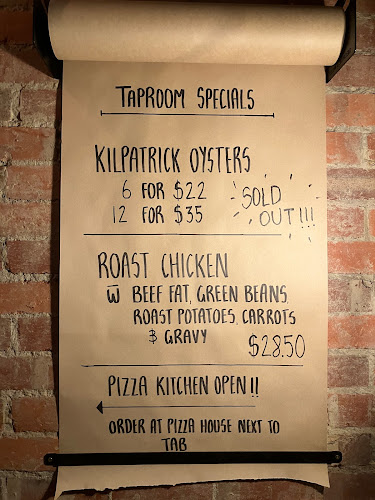 TAPROOM SPECIALS
KILPATRICK OYSTERS
6 FOR $22
12 FOR $35
SOLD
OUT!!!
ROAST CHICKEN
W̅ BEEF FAT, GREEN BEANS
ROAST POTATOES, CARROTS
& GRAVY
$28.50
PIZZA KITCHEN OPEN!!
ORDER AT PIZZA HOUSE NEXT TO
TAB